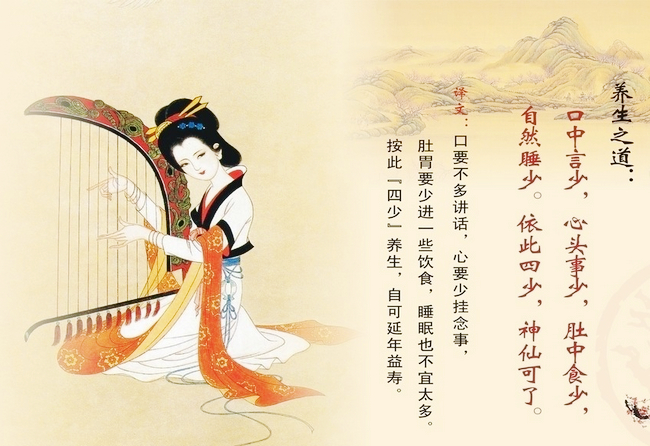 养生之道：
口中言少，心头事少，肚中食少，
自然睡少。依此四少，神仙可了。
译文：口要不多讲话，心要少挂念事，
肚胃要少进一些饮食，睡眠也不宜太多。
按此『四少』养生，自可延年益寿。